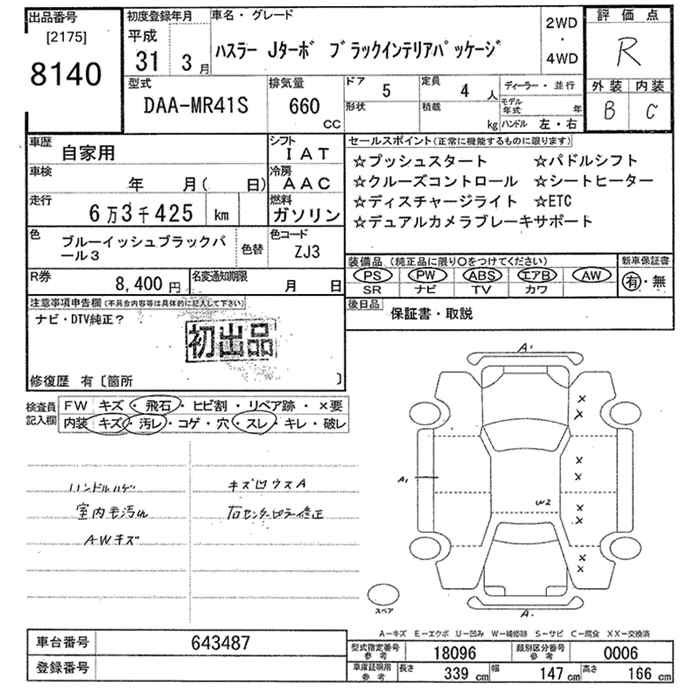 出品番号
[2175]
8140
初度登録年月
平成
31 3月
車名・グレード
ハスラー Jターボ ブラックインテリアパッケージ
2WD
・
4WD
評価点
R
外装 内装
B C
型式
DAA-MR41S
排気量
660
CC
ドア 5
形状
定員 4人
積載 kg
ディーラー・並行
モデル年式 年
ハンドル 左・右
車歴 自家用
車検 年 月( 日)
走行 6万3千425 km
シフト IAT
冷房 AAC
燃料 ガソリン
色 ブルーイッシュブラックパール3
色替
色コード ZJ3
R券 8,400円
名変通知期限 月 日
セールスポイント(正常に機能するものに限ります)
☆プッシュスタート ☆パドルシフト
☆クルーズコントロール ☆シートヒーター
☆ディスチャージライト ☆ETC
☆デュアルカメラブレーキサポート
装備品 (純正品に限り〇をつけてください)
PS PW ABS エアB AW
SR ナビ TV カワ
新車保証書
有・無
後日品 保証書・取説
注意事項申告欄(不具合内容等は具体的に記入して下さい)
ナビ・DTV純正?
初出品
修復歴 有〔箇所 〕
検査員記入欄
FW キズ・飛石・ヒビ割・リペア跡・×要
内装 キズ・汚レ・コゲ・穴・スレ・キレ・破レ
ハンドルハゲ
室内毛汚れ
AWキズ
キズ凹ウスA
右センターピラー修正
A'
A1
W2
× × × × × × × ×
A.
スペア
A-キズ E-エクボ U-凹み W-補修跡 S-サビ C-腐食 ×X-交換済
車台番号 643487
登録番号
型式指定番号 参考 18096
類別区分番号 参考 0006
車庫証明用 参考 長さ 339 cm 幅 147 cm 高さ 166 cm